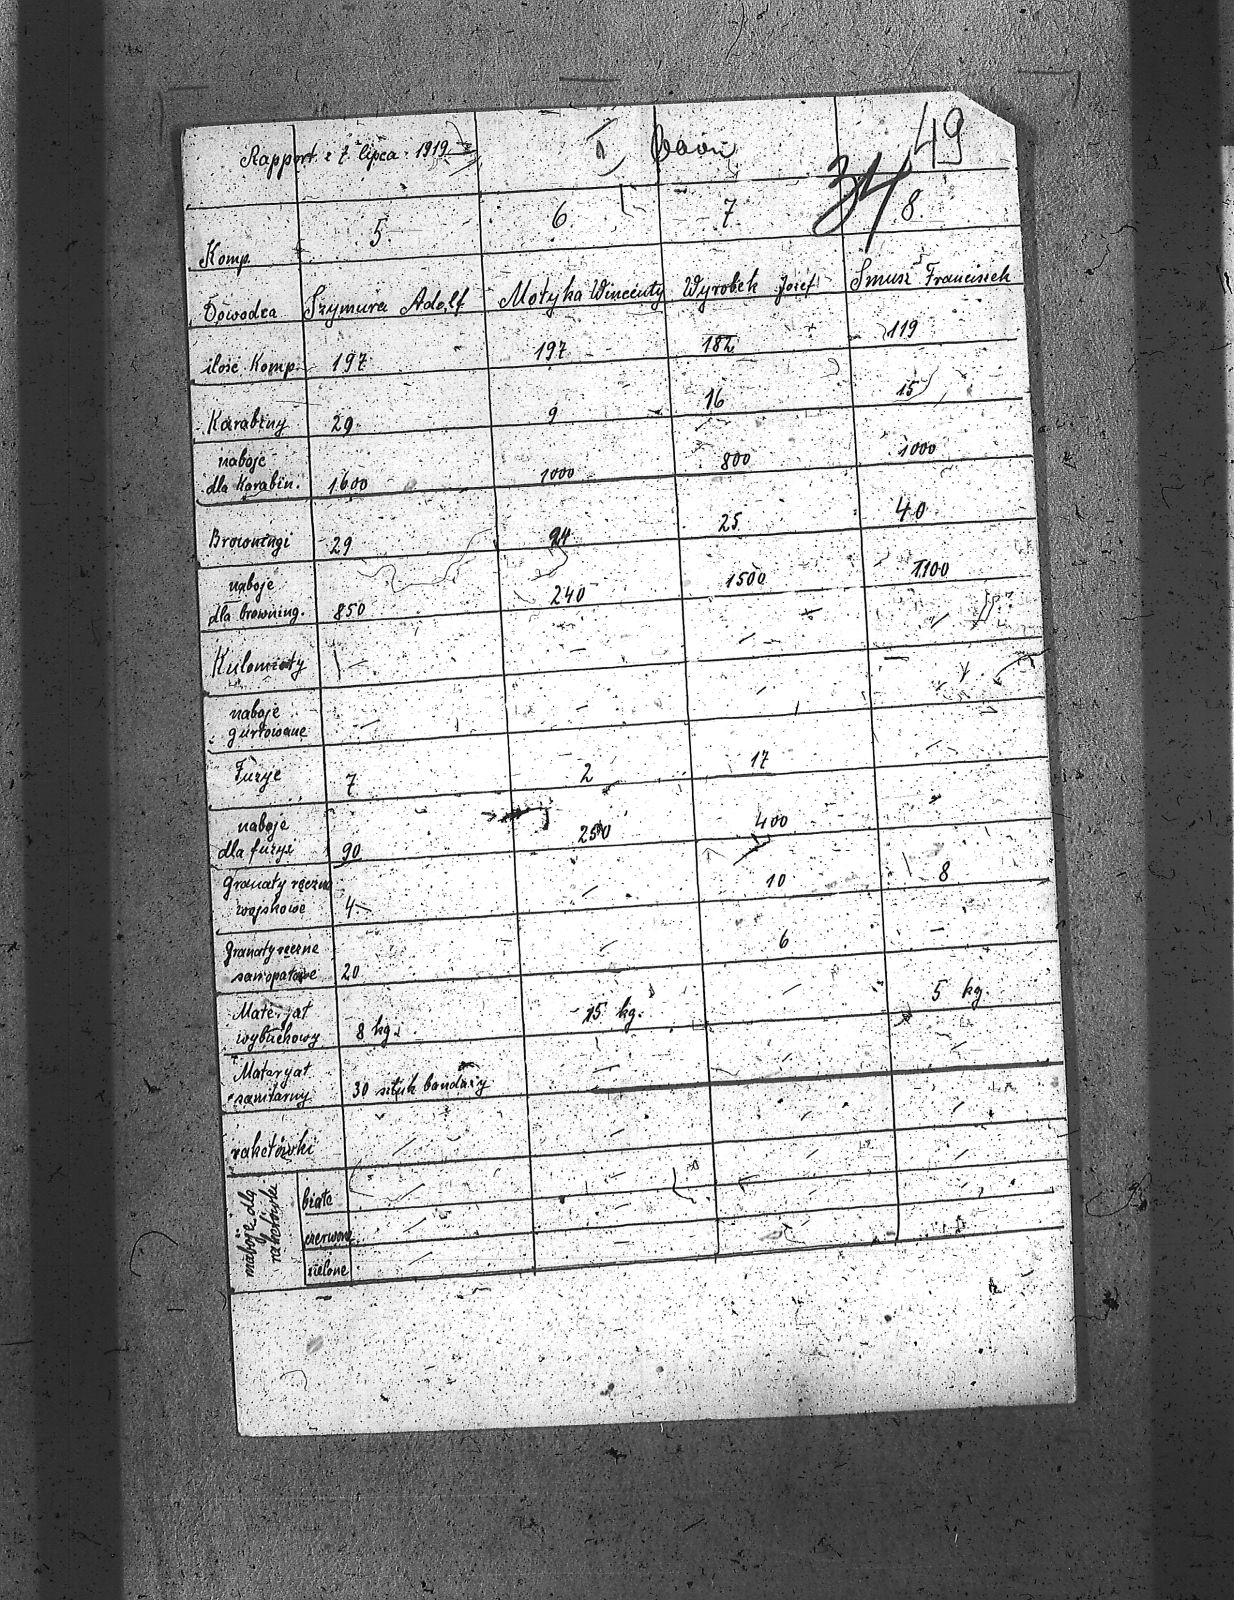 49
Rapport z 7 lipca 1919 baon
34
Komp. 5. 6. 7. 8.
Dowodca Szymura Adolf Motyka Wincenty Wyrobek Josef Smusz Franciszek
ilość Komp. 197 197 182 119
Karabiny 29 9 16 15
naboje
dla Karabin. 1600 1000 800 1000
Browningi 29 24 25 40
naboje
dla browning. 850 240 1500 1100
Kulomioty - - - -
naboje
gurtowane - - - -
Fuzye 7 2 17 -
naboje
dla fuzyi 90 250 400 -
granaty ręczne
wojskowe 4 - 10 8
granaty ręczne
samopałowe 20 - 6 -
Materjał
wybuchowy 8 kg. 15 kg. - 5 kg
Materyał
sanitarny 30 sztuk bandaży - - -
rakietówki - - - -
naboje dla
rakietówki
białe - - - -
czerwone - - - -
zielone - - - -